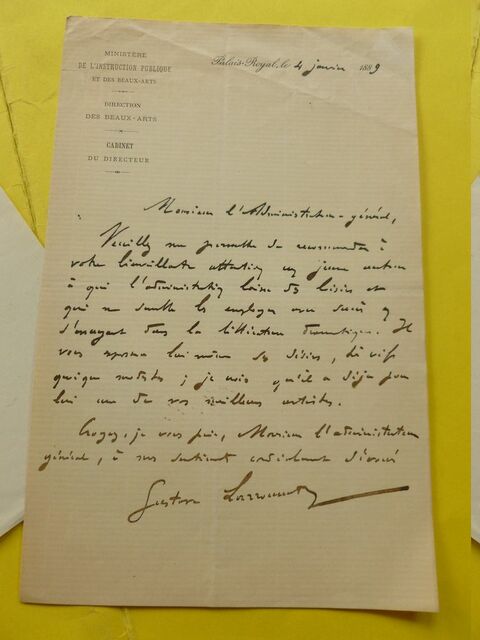 MINISTÈRE
DE L'INSTRUCTION PUBLIQUE
ET DES BEAUX-ARTS
DIRECTION
DES BEAUX-ARTS
CABINET
DU DIRECTEUR
Palais-Royal, le 4 janvier 1889
Monsieur l'Administrateur-général,
Veuillez me permettre de recommander à
votre bienveillante attention un jeune auteur
à qui l'administration laisse des loisirs et
qui me semble les employer avec succès en
s'essayant dans la littérature dramatique. Il
vous exposera lui-même ses désirs, très vifs
quoique modestes ; je crois qu'il a déjà pour
lui un de vos meilleurs artistes.
Croyez, je vous prie, Monsieur l'administrateur
général, à mes sentiments cordialement dévoués
Gustave Larroumet